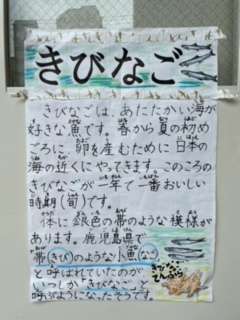 きびなご
きびなごは、あたたかい海が
好きな魚です。春から夏の初め
ごろに、卵を産むために日本の
海の近くにやってきます。このころの
きびなごが一年で一番おいしい
時期(旬)です。
体に銀色の帯のような模様が
あります。鹿児島県で
帯(きび)のような小魚(なご)
と呼ばれていたのが、
いつしか"きびなご"と
呼ぶようになったそうです。
きびなご
てんぷら